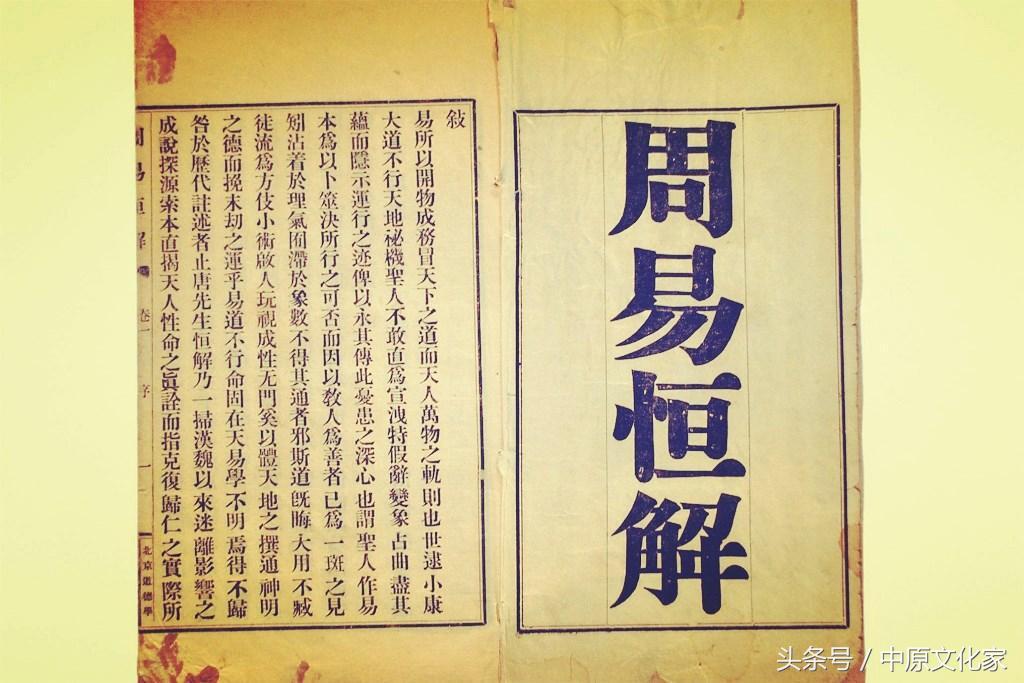 周易恒解
敍
易所以開物成務冒天下之道而天人萬物之軌則也世逮小康
大道不行天地祕機聖人不敢直爲宣洩特假辭變象占曲盡其
蘊而隱示運行之迹俾以永其傳此憂患之深心也謂聖人作易
本爲以卜筮決所行之可否而因以敎人爲善者已爲一斑之見
矧沾着於理氣囿滯於象數不得其通者邪斯道旣晦大用不臧
徒流爲方伎小術啟人玩視成性无門奚以體天地之撰通神明
之德而挽末劫之運乎易道不行命固在天易學不明焉得不歸
咎於歷代註述者止唐先生恒解乃一掃漢魏以來迷離影響之
成說探源索本直揭天人性命之眞詮而指克復歸仁之實際所
周易恒解 卷一 序 一 北京道德學
头条号 / 中原文化家